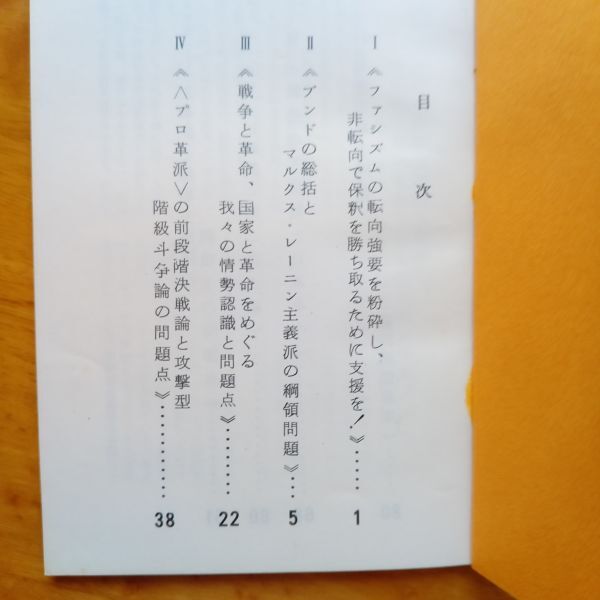 目次
Ⅰ《ファシズムの転向強要を粉砕し、
非転向で保釈を勝ち取るために支援を!》…… 1
Ⅱ《ブンドの総括と
マルクス・レーニン主義派の綱領問題》… 5
Ⅲ《戦争と革命、国家と革命をめぐる
我々の情勢認識と問題点》……… 22
Ⅳ《〈プロ革派〉の前段階決戦論と攻撃型
階級斗争論の問題点》………… 38